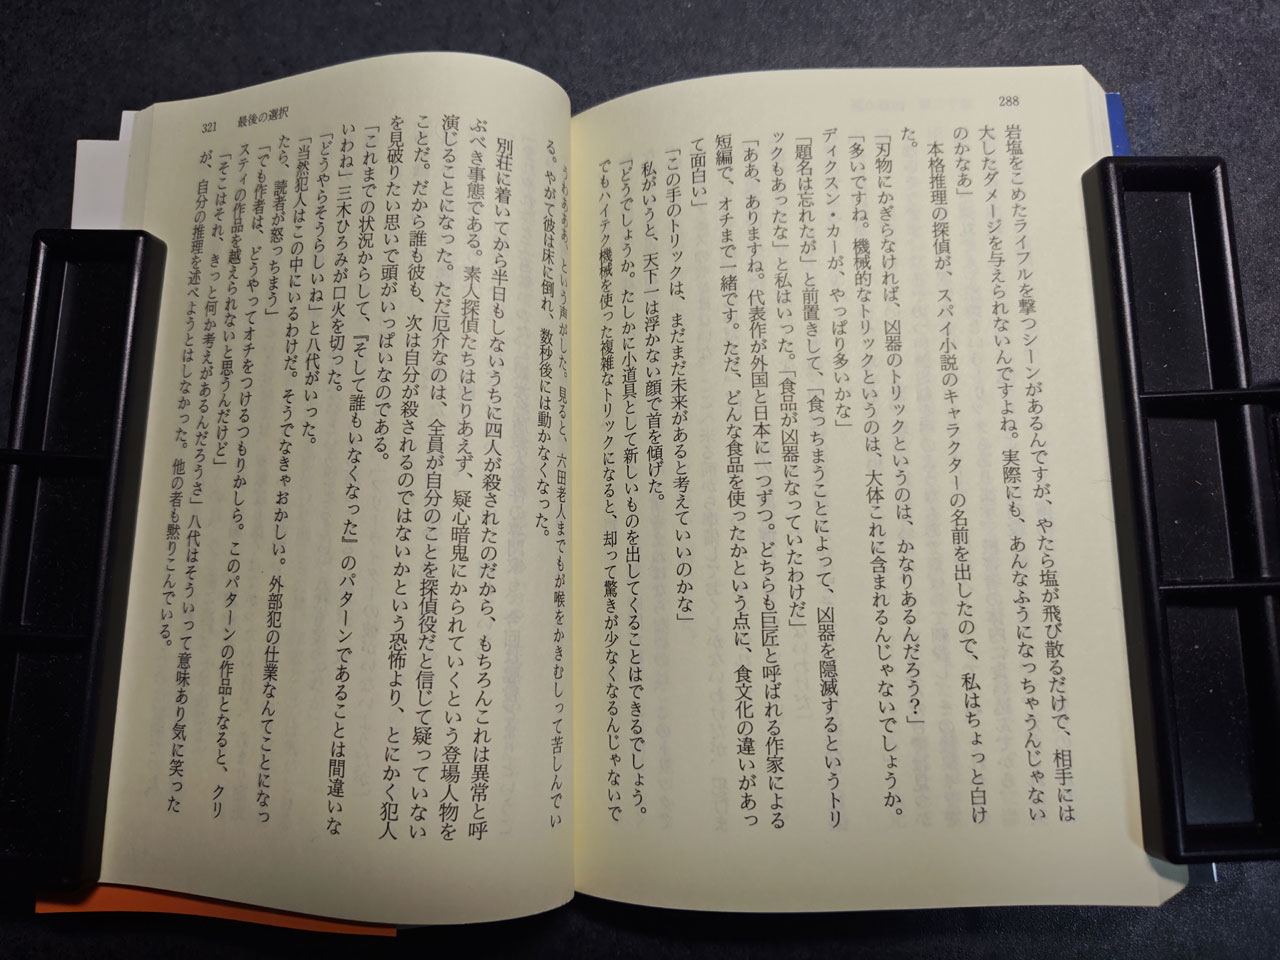 288
岩塩をこめたライフルを撃つシーンがあるんですが、やたら塩が飛び散るだけで、相手には
大したダメージを与えられないんですよね。実際にも、あんなふうになっちゃうんじゃない
のかなあ」
本格推理の探偵が、スパイ小説のキャラクターの名前を出したので、私はちょっと白け
た。
「刃物にかぎらなければ、凶器のトリックというのは、かなりあるんだろう？」
「多いですね。機械的なトリックというのは、大体これに含まれるんじゃないでしょうか。
ディクスン・カーが、やっぱり多いかな」
「題名は忘れたが」と前置きして、「食っちまうことによって、凶器を隠滅するというトリ
ックもあったな」と私はいった。「食品が凶器になっていたわけだ」
「ああ、ありますね。代表作が外国と日本に一つずつ。どちらも巨匠と呼ばれる作家による
短編で、オチまで一緒です。ただ、どんな食品を使ったかという点に、食文化の違いがあっ
て面白い」
「この手のトリックは、まだまだ未来があると考えていいのかな」
私がいうと、天下一は浮かない顔で首を傾げた。
「どうでしょうか。たしかに小道具として新しいものを出してくることはできるでしょう。
でもハイテク機械を使った複雑なトリックになると、却って驚きが少なくなるんじゃないで
321 最後の選択
うわああ、という声がした。見ると、六田老人までもが喉をかきむしって苦しんでい
る。やがて彼は床に倒れ、数秒後には動かなくなった。
別荘に着いてから半日もしないうちに四人が殺されたのだから、もちろんこれは異常と呼
ぶべき事態である。素人探偵たちはとりあえず、疑心暗鬼にかられていくという登場人物を
演じることになった。ただ厄介なのは、全員が自分のことを探偵役だと信じて疑っていない
ことだ。だから誰も彼も、次は自分が殺されるのではないかという恐怖より、とにかく犯人
を見破りたい思いで頭がいっぱいなのである。
「これまでの状況からして、『そして誰もいなくなった』のパターンであることは間違いな
いわね」三木ひろみが口火を切った。
「どうやらそうらしいね」と八代がいった。
「当然犯人はこの中にいるわけだ。そうでなきゃおかしい。外部犯の仕業なんてことになっ
たら、読者が怒っちまう」
「でも作者は、どうやってオチをつけるつもりかしら。このパターンの作品となると、クリ
スティの作品を越えられないと思うんだけど」
「そこはそれ、きっと何か考えがあるんだろうさ」八代はそういって意味あり気に笑った
が、自分の推理を述べようとはしなかった。他の者も黙りこんでいる。